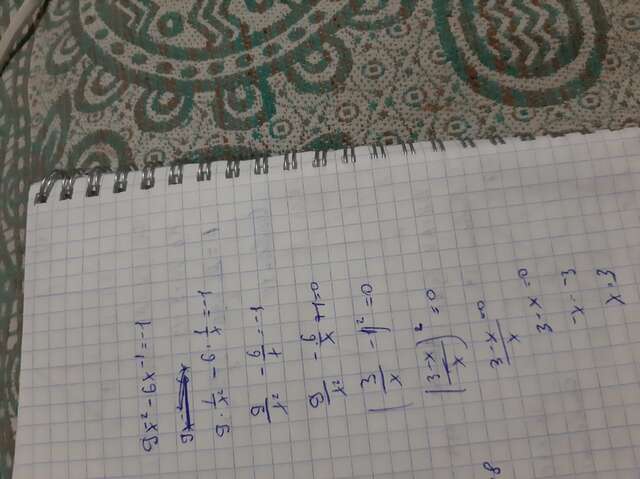 9x⁻² - 6x⁻¹ = -1
9 · 1/x² - 6 · 1/x = -1
9/x² - 6/x = -1
9/x² - 6/x + 1 = 0
(3/x - 1)² = 0
(3-x/x)² = 0
3-x/x = 0
3 - x = 0
-x = -3
x = 3
8